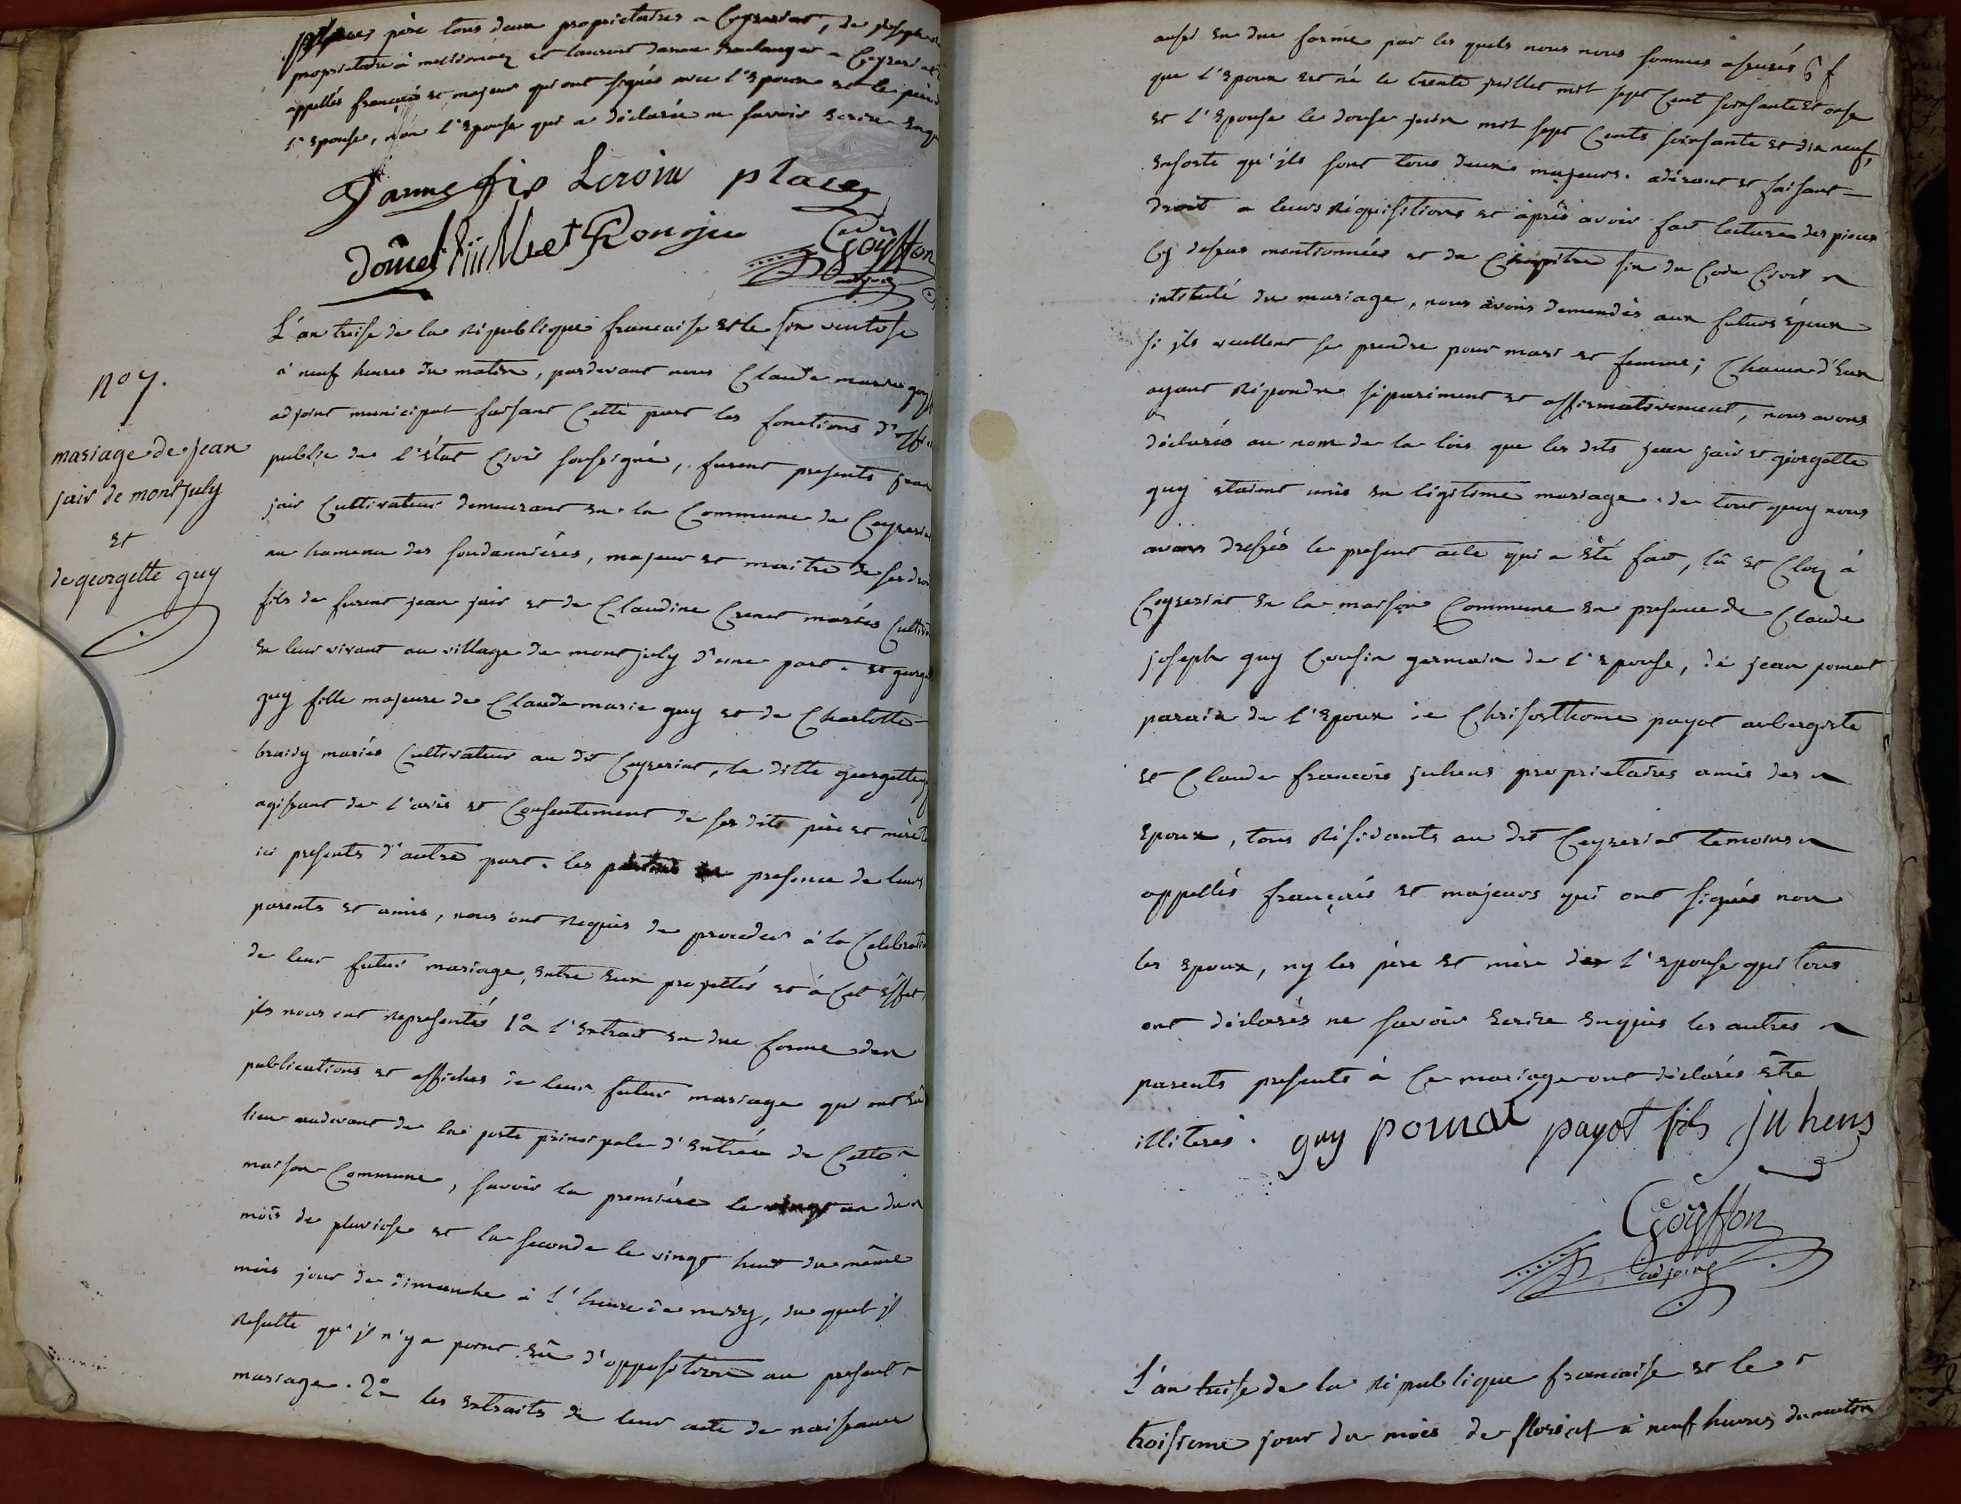 père tous deux proprietaires a Ceyzeriat, de joseph
proprietaire à et laurent danne boulanger a Ceyzeriat
appellés français et majeurs qui ont signés avec l'epoux et le père
l'epouse, non l'epouse qui a déclarée ne savoir ecrire
Danne fils Leroin place
Goÿffon
adjoint
L'an treise de la republique francaise et le six ventose
à neuf heures du matin, pardevant nous Claude marie
adjoint municipal faisant Cette part les fonctions d'
public de l'état Civil soussigné, furent presents jean
jair Cultivateur demeurant en la Commune de Ceyzeriat
au hameau des soudannières, majeur et maitre de ses droits
fils de furent jean jair et de Claudine Crenet mariés
en leur vivant au village de montjuly d'une part. et
guy fille majeure de Claude marie guy et de Charlotte
braidy mariés Cultivateur au dit Ceyzeriat, la ditte georgette
agissant de l'avis et Consentement de ses dits père et mère
ici presents d'autre part. les presence de leurs
parents et amis, nous ont requis de proceder à la Celebration
de leur futur mariage, entre eux projettés et à Cet éffet
jls nous ont representés 1° l'extrait en due forme des
publications et affiches de leur futur mariage qui ont eû
lieu audevant de la porte principale d'entrée de Cette
maison Commune, savoir la première le un du
mois de pluviose et la seconde le vingt huit du même
mois jour de dimanche à l'heure de midy, du quel jl
resulte qu'jl n'y a point eû d'opposition au present
mariage. 2° les extraits de leur acte de naissance
n° 7.
mariage de jean
jair de montjuly
et
de georgette guy
aussi en due forme par les quels nous nous sommes assurés
que l'epoux est né le trente juillet mil sept Cent soixante et onse
et l'epouse le douse juin mil sept Cents soixante et dix neuf,
ensorte qu'jls sont tous deux majeurs. adérant et faisant
droit a leurs réquisitions et après avoir fait lecture des pieces
Cy dessus mentionnées et du Chapitre six du Code Civil
intitulé du mariage, nous avons demandés aux futurs époux
si jls veullent se prendre pour mari et femme; Chacun d'eux
ayant répondu séparément et affirmativement, nous avons
déclarés au nom de la lois que les dits jean jair et georgette
guy etaient unis en légitime mariage. de tout quoy nous
avons dressés le present acte qui a été fait, lû et Clos à
Ceyzeriat en la maison Commune en presence de Claude
joseph guy Cousin germain de l'epouse, de jean pomat
parain de l'epoux de Chrisosthome payot aubergiste
et Claude francois juhens proprietaires amis des
epoux, tous résidants au dit Ceyzeriat temoins
appellés français et majeurs qui ont signés non
les epoux, ny les père et mère de l'epouse qui tous
ont déclarés ne savoir ecrire enquis les autres
parents presents à Ce mariage ont déclarés être
illiterés. guy pomat payot fils juhens
Goÿffon
adjoint
L'an treise de la republique francaise et le
troisieme jour du mois de floréal à neuf heures du matin